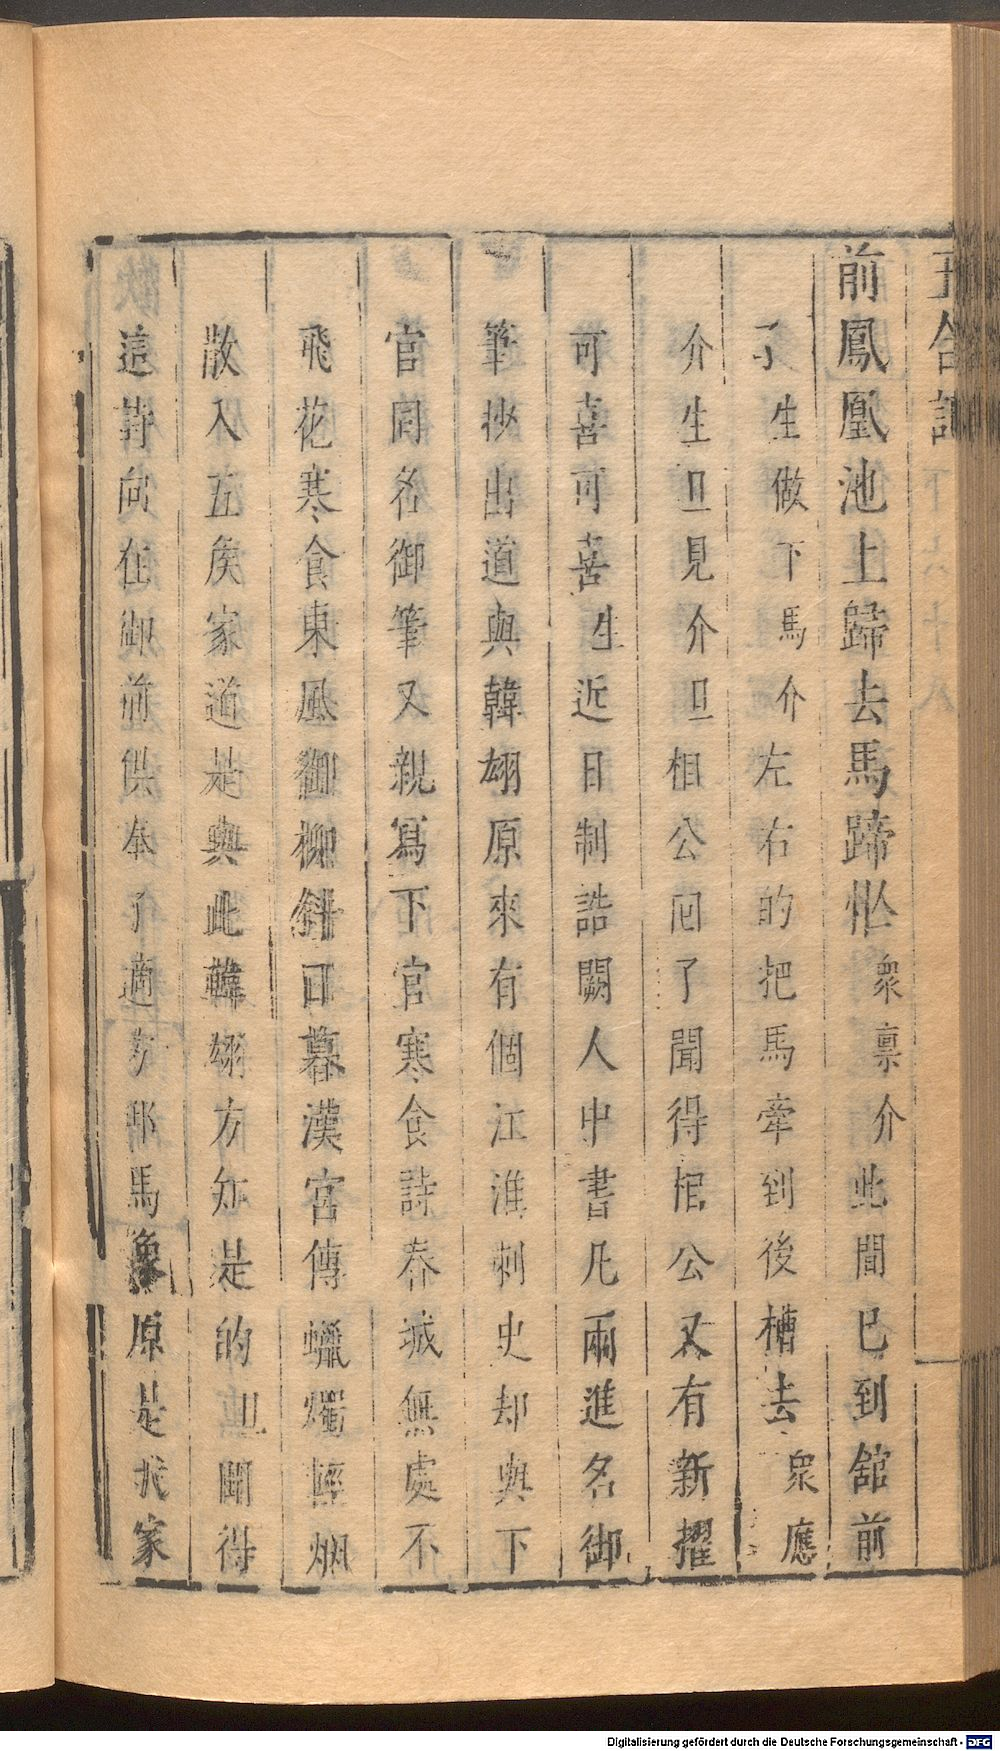 玉合記
前鳳凰池上歸去馬蹄忙衆稟介此間已到舘前
了生做下馬介左右的把馬牽到後槽去衆應
介生旦見介旦相公囘了聞得相公又有新擢
可喜可喜生近日制誥闕人中書凡兩進名御
筆抄出道與韓翃原來有個江淮刺史却與下
官同名御筆又親寫下官寒食詩春城無處不
飛花寒食東風御柳斜日暮漢宮傳蠟燭輕烟
散入五侯家道是與此韓翃方知是的旦聞得
這詩向在御前供奉了適 那馬 原是我家
Digitalisierung gefördert durch die Deutsche Forschungsgemeinschaft - DFG